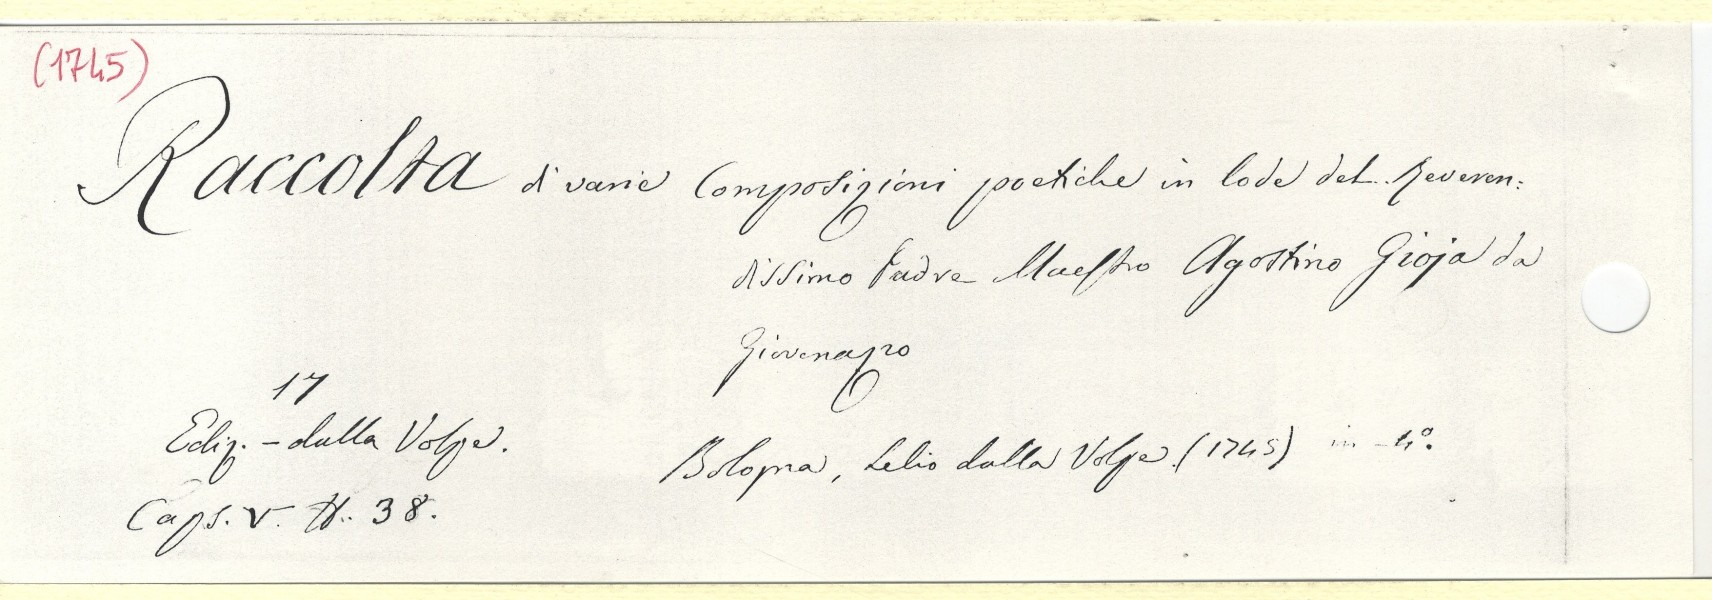 (1745)
Raccolta di varie Composizioni poetiche in lode del Reveren:
dissimo Padre Maestro Agostino Gioja da
Giovenazzo
17
Ediz. - dalla Volpe.
Bologna, Lelio dalla Volpe. (1745) in - 4º.
Caps. V. N. 38.